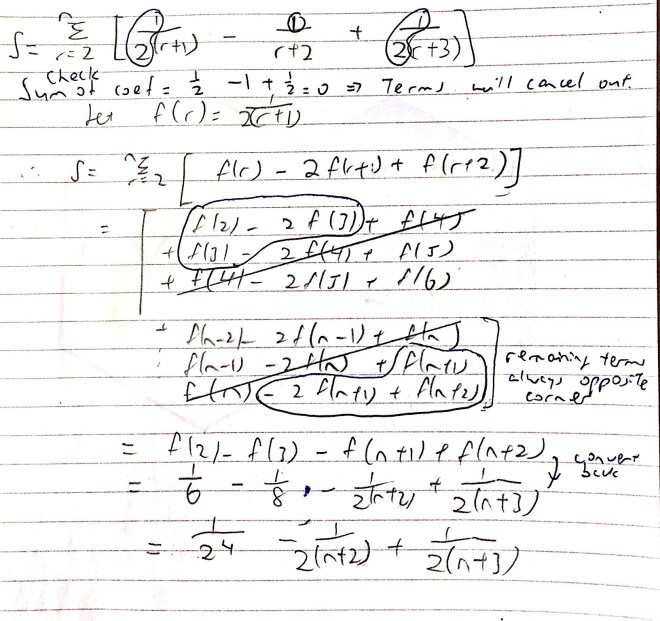 S = n Σ r=2 [ 1/2(r+1) - 1/r+2 + 1/2(r+3) ]
check
Sum of coef = 1/2 - 1 + 1/2 = 0 ⇒ Terms will cancel out.
Let f(r) = 1/2(r+1)
∴ S = n Σ r=2 [ f(r) - 2f(r+1) + f(r+2) ]
= [ f(2) - 2f(3) + f(4)
+ f(3) - 2f(4) + f(5)
+ f(4) - 2f(5) + f(6)
+ f(n-2) - 2f(n-1) + f(n)
+ f(n-1) - 2f(n) + f(n+1)
f(n) - 2f(n+1) + f(n+2) ]
remaining terms
always opposite
corner
= f(2) - f(3) - f(n+1) + f(n+2)
convert
back
= 1/6 - 1/8 - 1/2(n+2) + 1/2(n+3)
= 1/24 - 1/2(n+2) + 1/2(n+3)